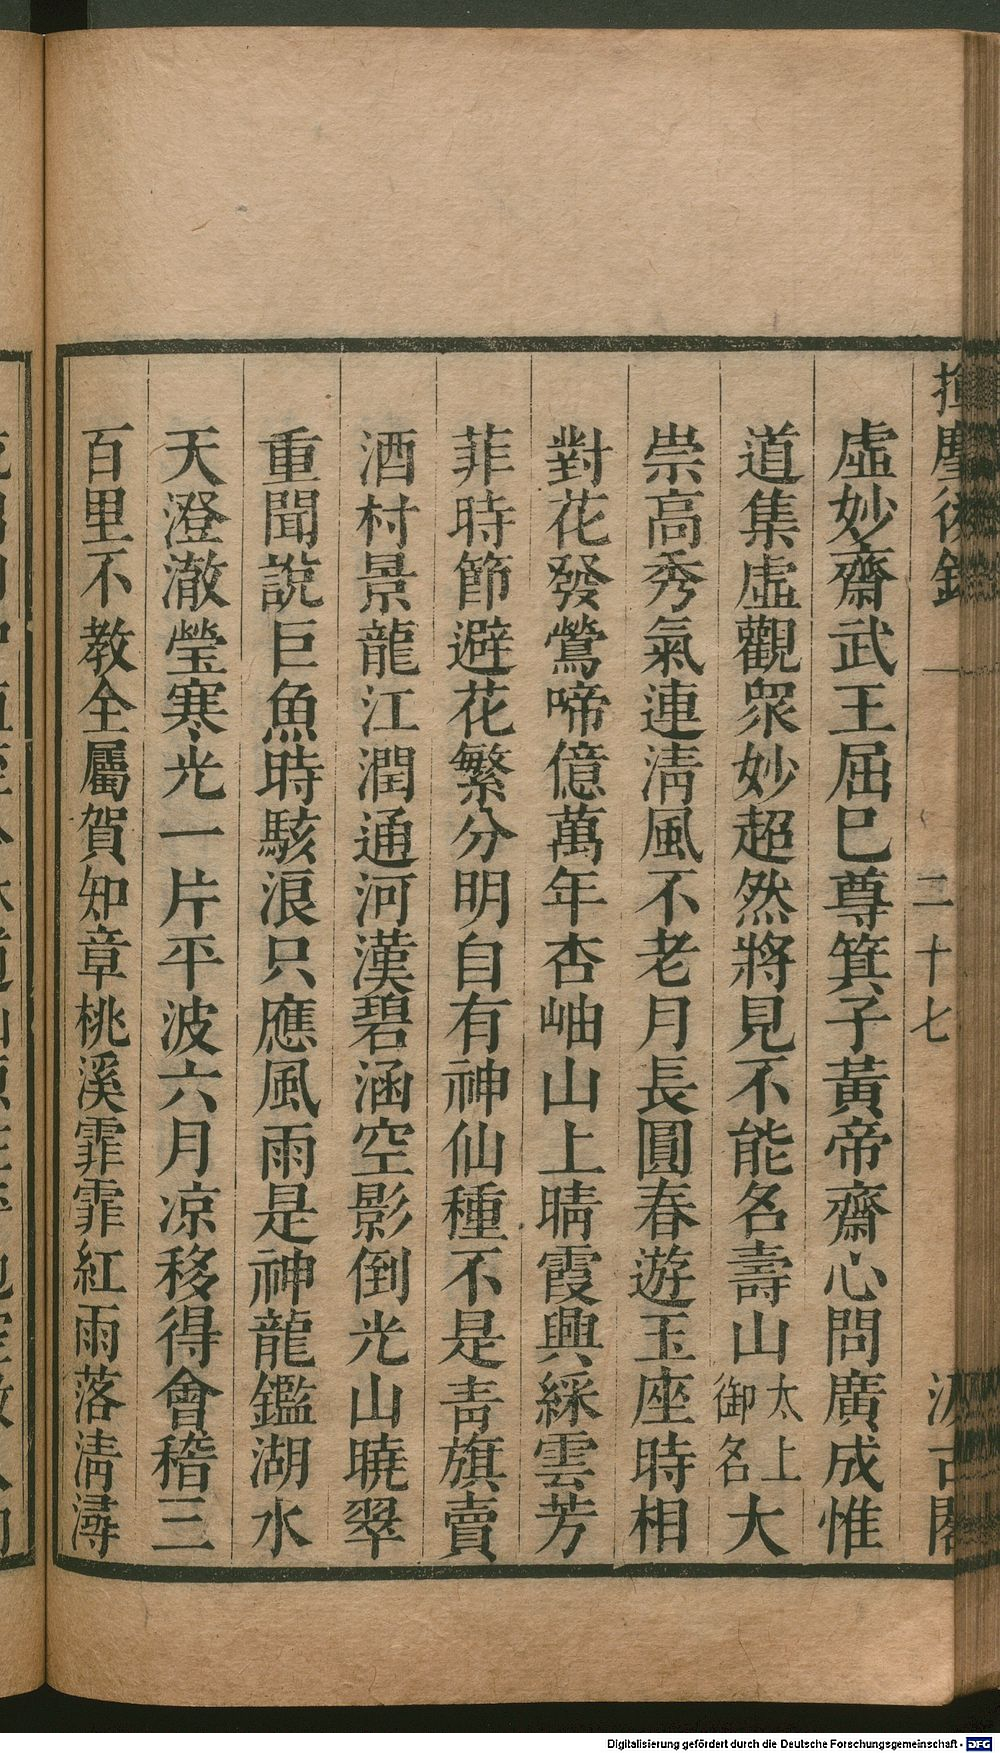 揮麈後錄
一
二十七
汲古閣
虛妙齋武王屈巳尊箕子黃帝齋心問廣成惟
道集虛觀衆妙超然將見不能名壽山太上御名大
崇高秀氣連淸風不老月長圓春遊玉座時相
對花發鶯啼億萬年杏岫山上晴霞興綵雲芳
菲時節避花繁分明自有神仙種不是靑旗賣
酒村景龍江潤通河漢碧涵空影倒光山曉翠
重聞說巨魚時駭浪只應風雨是神龍鑑湖水
天澄澈瑩寒光一片平波六月凉移得會稽三
百里不教全屬賀知章桃溪霏霏紅雨落淸潯
Digitalisierung gefördert durch die Deutsche Forschungsgemeinschaft - DFG